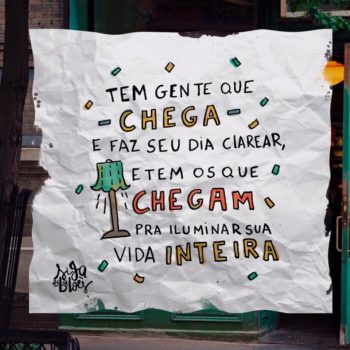 TEM GENTE QUE
- CHEGA -
E FAZ SEU DIA CLAREAR,
E TEM OS QUE
CHEGAM
PRA ILUMINAR SUA
VIDA INTEIRA